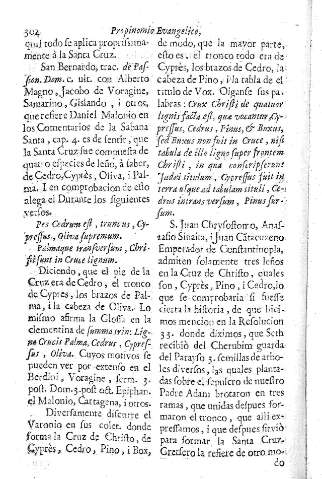 304 Propinomio Evangelico,
qual todo se aplica propriissima-
mente à la Santa Cruz.
San Bernardo, trac. de Pas-
sion. Dom. c. ult. con Alberto
Magno, Jacobo de Voragine,
Samarino, Gislando, i otros,
que refiere Daniel Malonio en
los Comentarios de la Sabana
Santa, cap. 4. es de sentir, que
la Santa Cruz fue compuesta de
quatro especies de leña, à saber,
de Cedro, Cyprès, Oliva, i Pal-
ma. I en comprobacion de esto
alega el Durante los siguientes
versos.
Pes Cedrum est, truncus, Cy-
pressus, Oliva supremum.
Palmaque transversum, Chri-
sti sunt in Cruce lignum.
Diciendo, que el pie de la
Cruz era de Cedro, el tronco
de Cyprès, los brazos de Pal-
ma, i la cabeza de Oliva. Lo
mismo afirma la Glossa en la
clementina de summa trin: Lig-
na Crucis Palma, Cedrus, Cypres-
sus, Oliva. Cuyos motivos se
pueden vèr por extenso en el
Berdini, Voragine, serm. 3.
post. Dom. 3. post oct. Epiphan.
el Malonio, Cartagena, i otros.
Diversamente discurre el
Varonio en sus colet. donde
forma la Cruz de Christo, de
Cyprès, Cedro, Pino, i Box,
de modo, que la mayor parte,
esto es, el tronco todo era de
Cyprès, los brazos de Cedro, la
cabeza de Pino, i la tabla de el
titulo de Vox. Oiganse sus pa-
labras: Crux Christi de quatuor
lignis facta est, quæ vocantur Cy-
pressus, Cedrus, Pinus, & Boxus,
sed Buxus non fuit in Cruce, nisi
tabula de illo ligno super frontem
Christi, in qua conscripserunt
Judæi titulum, Cypressus fuit in
terra usque ad tabulam tituli, Ce-
drus in transversum, Pinus sur-
sum.
S. Juan Chrysostomo, Anas-
tasio Sinaita, i Juan Catacuzeno
Emperador de Constantinopla,
admiten solamente tres leños
en la Cruz de Christo, quales
son, Cyprès, Pino, i Cedro, lo
que se comprobaria si fuesse
cierta la historia, de que hici-
mos mencion en la Resolucion
33. donde diximos, que Seth
recibiò del Cherubim guarda
del Parayso 3. semillas de arbo-
les diversos, las quales planta-
das sobre el sepulcro de nuestro
Padre Adam brotaron en tres
ramas, que unidas despues for-
maron el tronco, que alli ex-
pressamos, i que despues sirviò
para formar la Santa Cruz.
Gretsero la refiere de otro mo-
do